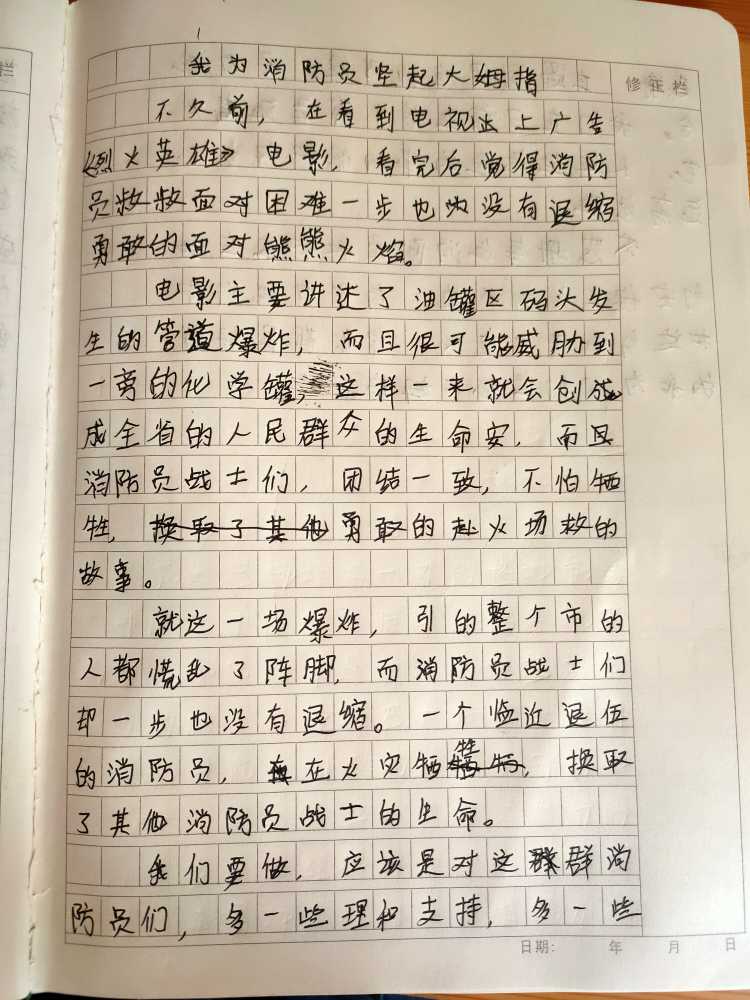 我为消防员坚起大姆指
修征栏
不久前，在看到电视出上广告
《烈火英雄》电影，看完后觉得消防
员救救面对困难一步也没有退缩
勇敢的面对熊熊火焰。
电影主要讲述了油罐区码头发
生的管道爆炸，而且很可能威胁到
一旁的化学罐，这样一来就会创成
成全省的人民群众的生命安，而且
消防员战士们，团结一致，不怕牺
牲，换取了其他勇敢的赴火场救的
故事。
就这一场爆炸，引的整个市的
人都慌乱了阵脚，而消防员战士们
却一步也没有退缩。一个临近退伍
的消防员，在火灾牺牲，换取
了其他消防员战士的生命。
我们要做，应该是对这群群消
防员们，多一些理和支持，多一些
日期： 年 月 日